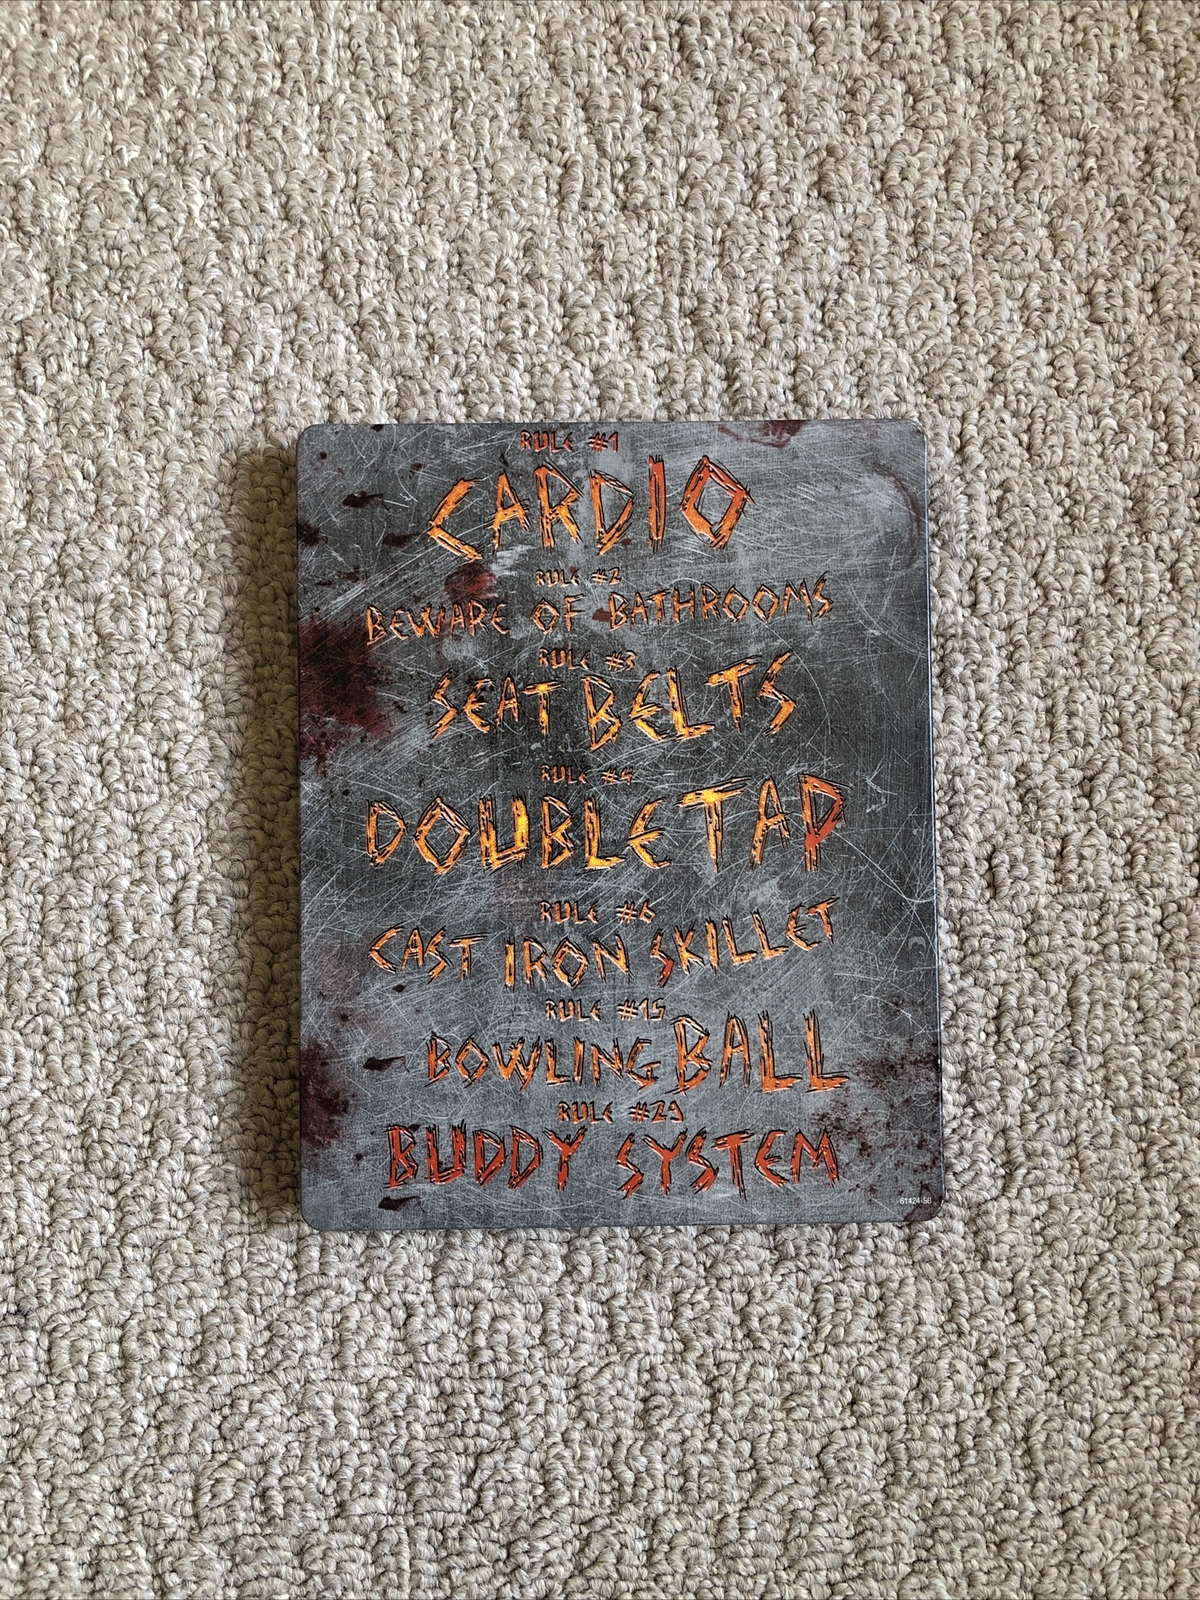 RULE #1
CARDIO
RULE #2
BEWARE OF BATHROOMS
RULE #3
SEAT BELTS
RULE #4
DOUBLE TAP
RULE #6
CAST IRON SKILLET
RULE #15
BOWLING BALL
RULE #29
BUDDY SYSTEM
61424-SB